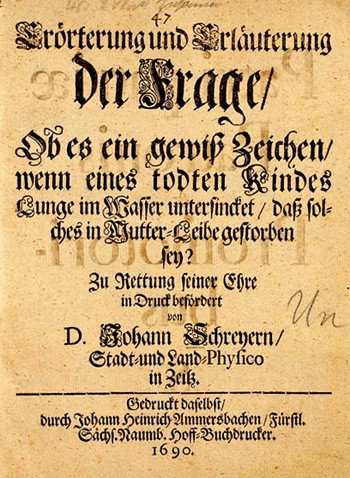 47
Erörterung und Erläuterung
der Frage/
Ob es ein gewiß Zeichen/
wenn eines todten Kindes
Lunge im Wasser untersincket / daß sol-
ches in Mutter-Leibe gestorben
sey?
Zu Rettung seiner Ehre
in Druck befördert
von
D. Johann Schreyern/
Stadt-und Land-Physico
in Zeitz.
Gedruckt daselbst/
durch Johann Heinrich Ammersbachen / Fürstl.
Sächs. Naumb. Hoff-Buchdrucker.
1690.
Un